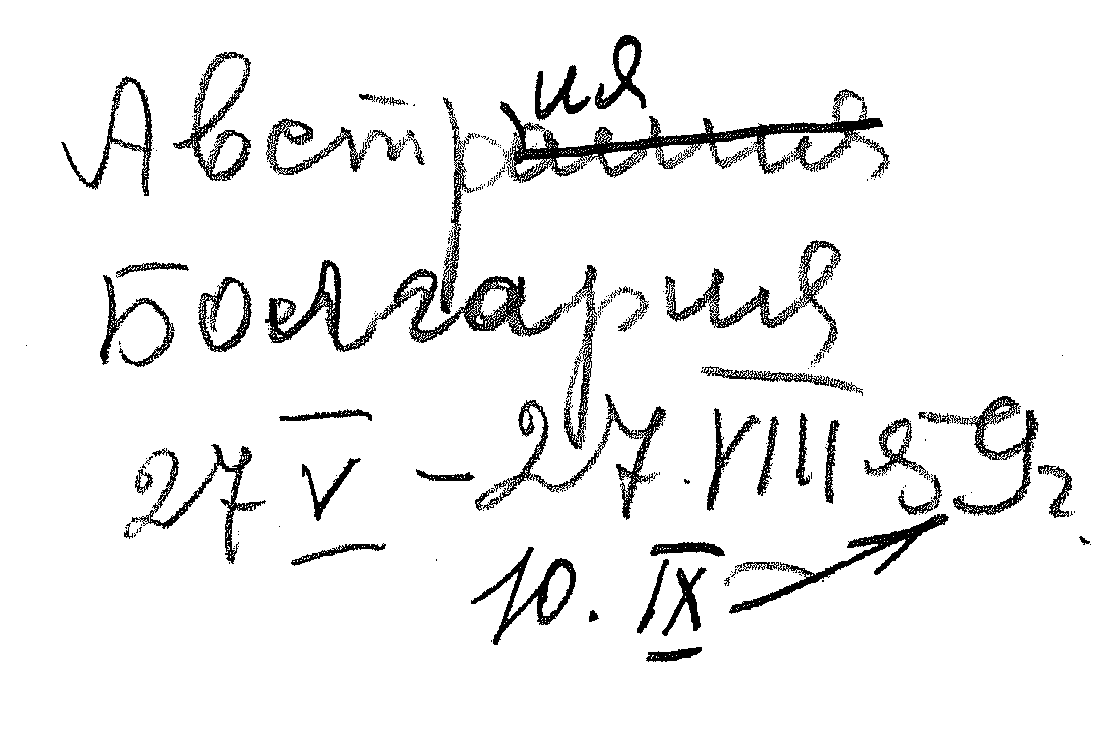 Австрия
Болгария
27 V – 27.VIII 59г.
10. IX